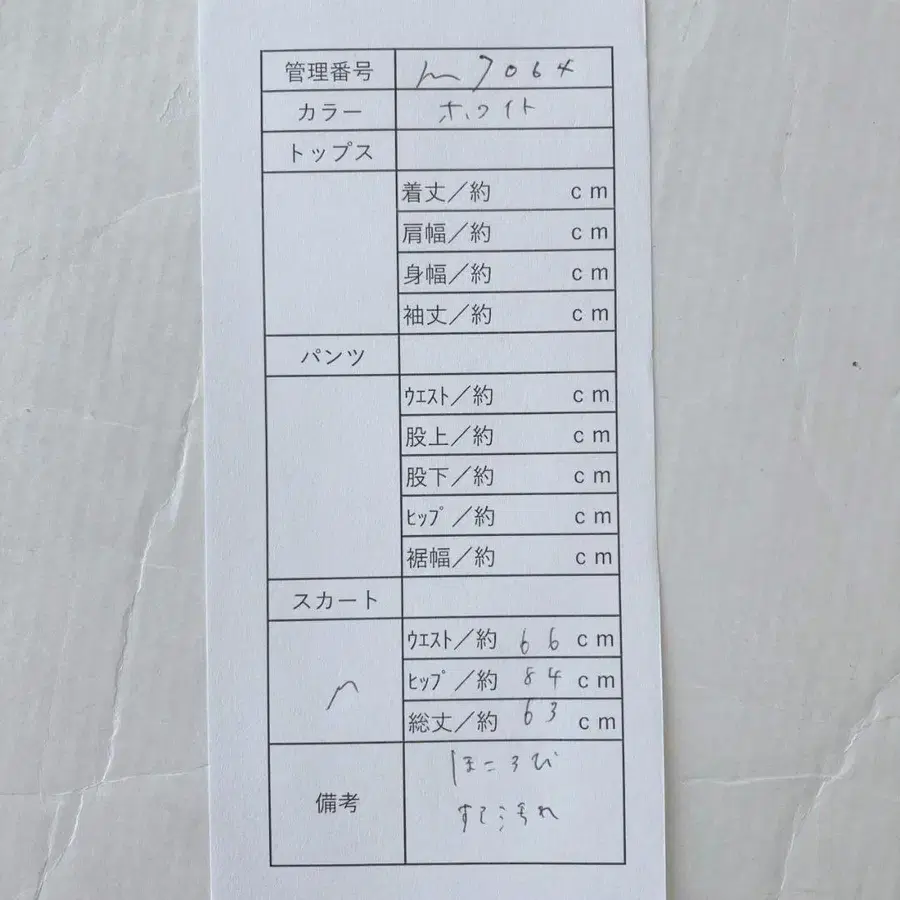 管理番号 m7064
カラー ホワイト
トップス
着丈／約 cm
肩幅／約 cm
身幅／約 cm
袖丈／約 cm
パンツ
ｳｴｽﾄ／約 cm
股上／約 cm
股下／約 cm
ﾋｯﾌﾟ／約 cm
裾幅／約 cm
スカート
ｳｴｽﾄ／約 66 cm
ﾋｯﾌﾟ／約 84 cm
総丈／約 63 cm
備考 ほころび
汚れ